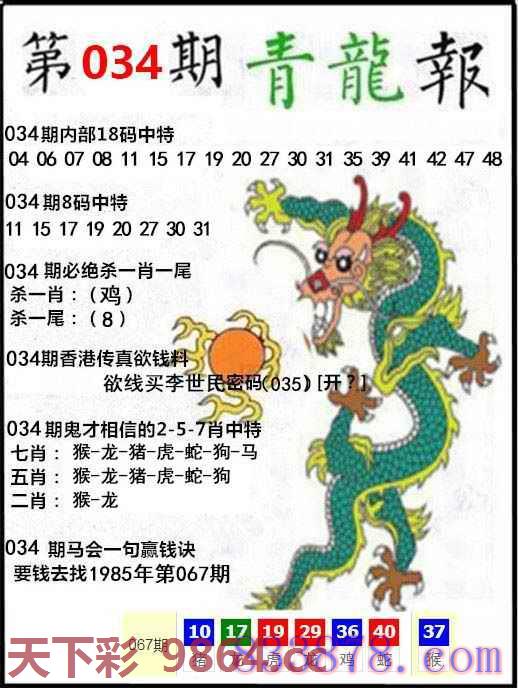 第034期青龍報
034期内部18码中特
04 06 07 08 11 15 17 19 20 27 30 31 35 39 41 42 47 48
034期8码中特
11 15 17 19 20 27 30 31
034 期必绝杀一肖一尾
杀一肖：(鸡)
杀一尾：(8)
034期香港传真欲钱料
欲线买李世民密码(035) [开？]
034期鬼才相信的2-5-7肖中特
七肖：猴-龙-猪-虎-蛇-狗-马
五肖：猴-龙-猪-虎-蛇-狗
二肖：猴-龙
034 期马会一句赢钱诀
要钱去找1985年第067期
067期 10 17 19 29 36 40 37
猪 龙 虎 龙 鸡 蛇 猴
天下彩 9864.cc